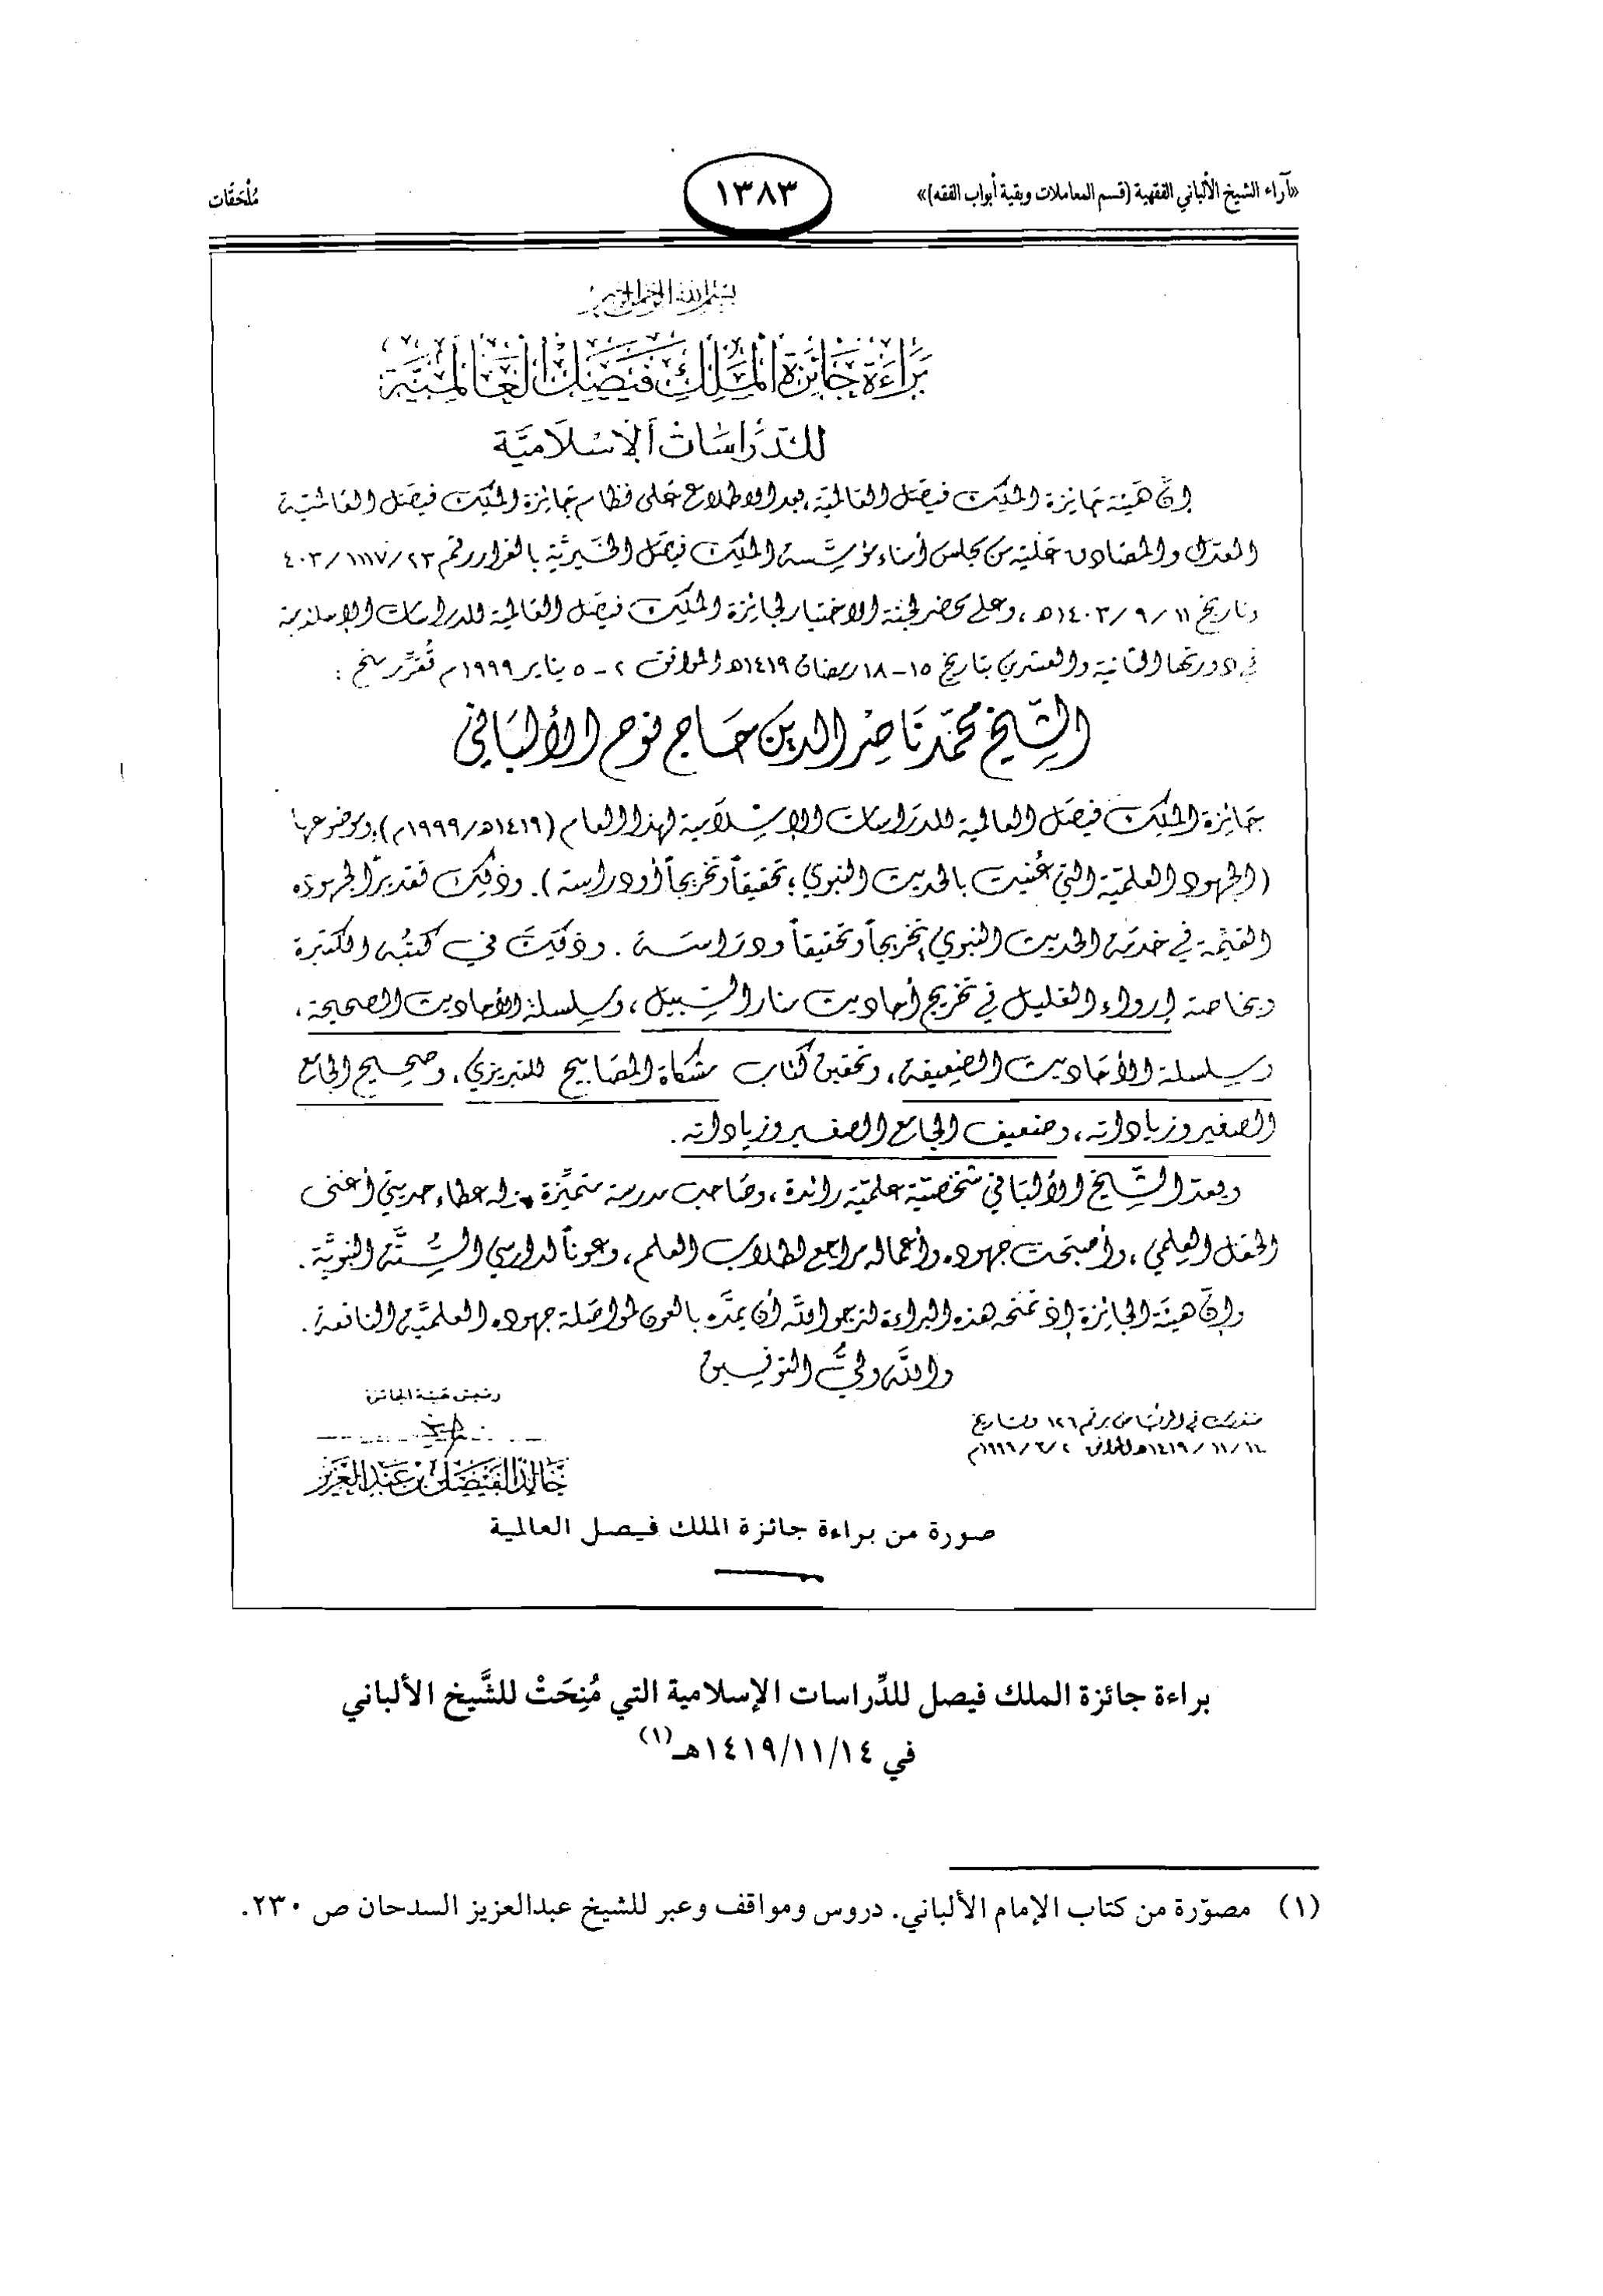 «آراء الشيخ الألباني الفقهية (قسم المعاملات وبقية أبواب الفقه)»
١٣٨٣
مُلْحَقَات
بسم الله الرحمن الرحيم
بَرَاءَة جَائِزَة المَلِك فَيصَل العَالَمِيَّة
للدِّرَاسَات الإسْلَاميَّة
إنّ هَيئة جَائزة الملك فيصَل العَالميّة، بعد الاطلاع عَلى نظام جَائزة الملك فيصَل العَالميّة
المعدّل والمصَادق عَليه من مجلس أمناء مؤسَّسة الملك فيصَل الخيريَّة بالقرار رقم ٤٠٣/١١١٧/٢٣
وتاريخ ١٤٠٣/٩/١١هـ، وعلى محضر لجنة الاختيار لجائزة الملك فيصَل العَالمية للدراسات الإسلامية
في دورتها الثانية والعشرين بتاريخ ١٥-١٨ رمضان ١٤١٩هـ الموافق ٢-٥ يناير ١٩٩٩م تُقرِّر منح:
الشَّيخ محمّد نَاصِر الدين حَاج نوح الألبَاني
جَائزة الملك فيصَل العالمية للدرَاسات الإسْلَامية لهذا العام (١٤١٩هـ/١٩٩٩م)؛ وموضوعها
(الجهود العلميّة التي عُنيت بالحديث النبوي؛ تحقيقاً وتخريجاً أو دراسة). وذلك تقديراً لجهوده
القيّمة في خدمَة الحديث النبوي تخريجاً وتحقيقاً ودرَاسَة. وذلك في كتبه الكثيرة
وبخاصة إرواء الغليل في تخريج أحاديث منار السّبيل، وسلسلة الأحاديث الصحيحة،
وسلسلة الأحَاديث الضعيفة، وتحقيق كتاب مشكاة المصَابيح للتبريزي، وصحيح الجامع
الصغير وزياداته، وضعيف الجامع الصغير وزياداته.
ويعدّ الشَّيخ الألبَاني شخصيّة علميّة رائدة، وصَاحب مدرسة متميِّزة، له عطاء حديثي أغنى
الحقل العِلمي، وأصبَحت جهوده وأعماله مراجع لطلاب العلم، وعوناً لدارسي السُّنَّة النبويَّة.
وإنّ هيئَة الجائزة إذ تمنحه هذه البراءة لترجو الله أن يمدّه بالعون لمواصَلة جهوده العلميَّة النافعة.
والله وليُّ التوفيق
رئيسُ هَيئة الجائزة
في الريَاض برقم ١٢٦ وتاريخ
١٤١٩/١١/١٤هـ الموافق ١٩٩٩/٣/٢م
خَالِد الفَيصَل بن عَبدالعَزيز
صورة من براءة جائزة الملك فيصل العالمية
براءة جائزة الملك فيصل للدِّراسات الإسلامية التي مُنِحَتْ للشَّيخ الألباني
في ١٤١٩/١١/١٤هـ(١)
(١) مصوّرة من كتاب الإمام الألباني. دروس ومواقف وعبر للشيخ عبدالعزيز السدحان ص ٢٣٠.